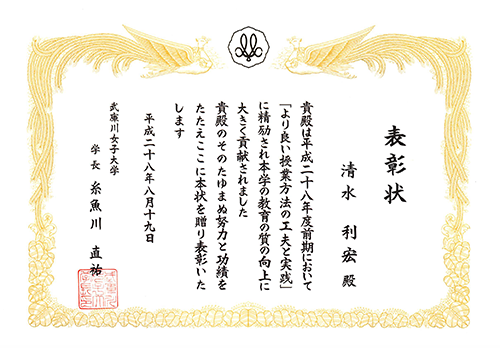 表彰状
清水 利宏 殿
貴殿は平成二十八年度前期において
「より良い授業方法の工夫と実践」
に精励され本学の教育の質の向上に
大きく貢献されました
貴殿のそのたゆまぬ努力と功績を
たたえここに本状を贈り表彰いた
します
平成二十八年八月十九日
武庫川女子大学
学長 糸魚川 直祐